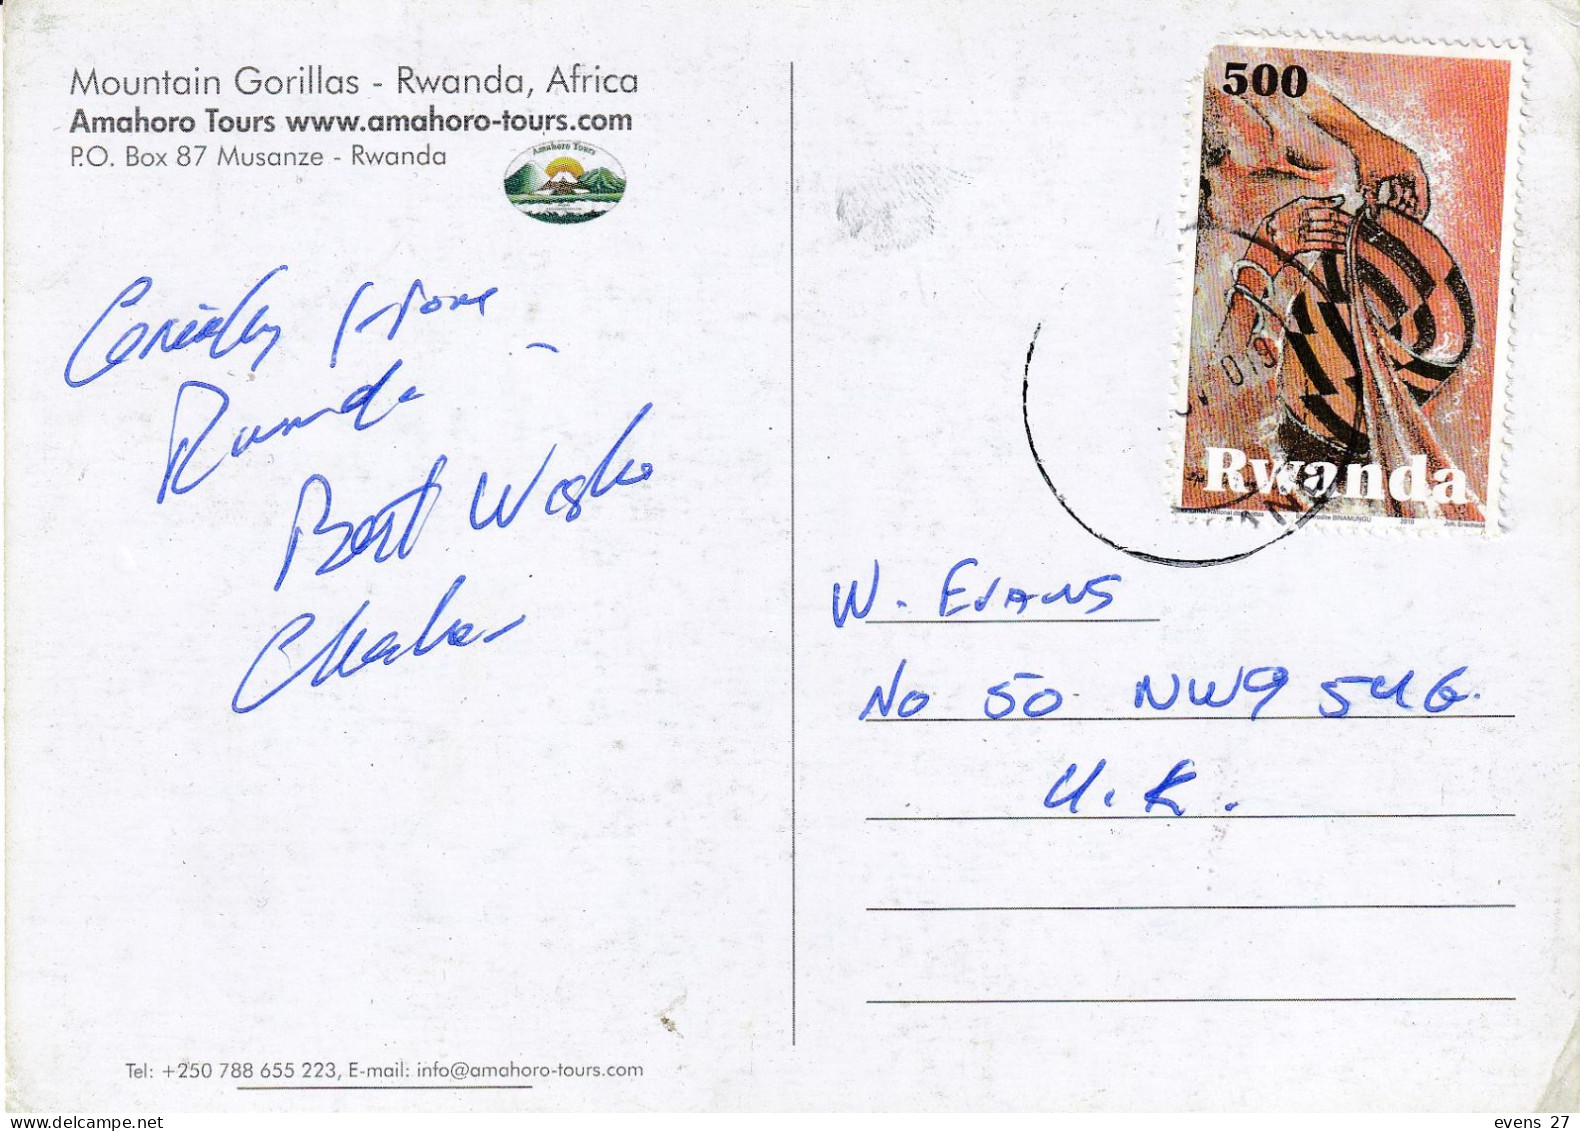 Mountain Gorillas - Rwanda, Africa
Amahoro Tours www.amahoro-tours.com
P.O. Box 87 Musanze - Rwanda
Amahoro Tours
500
Rwanda
BINAMUNGU
2010
from
Rwanda
Best Wishes
W. EVANS
NO 50 NW9 54G.
U.K.
Tel: +250 788 655 223, E-mail: info@amahoro-tours.com
www.delcampe.net
evens 27